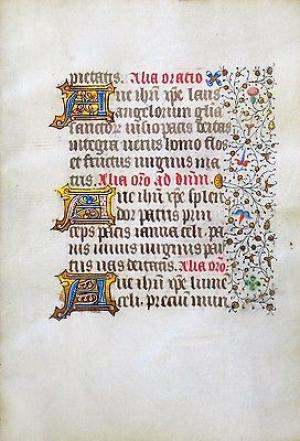 pietatis. Alia oratio
Aue ihu xpe laus
angelorum gl'ia
sanctor uisio pacis deitas
integra uerus homo flos
et fructus uirginis ma
tris. Alia oro ad dnm.
Aue ihu xpe splen
dor patris prin
ceps pacis ianua celi. pa
nis uiuus uirginis par
tus uas deitatis. Alia oro.
Aue ihu xpe lume
celi. precium mun